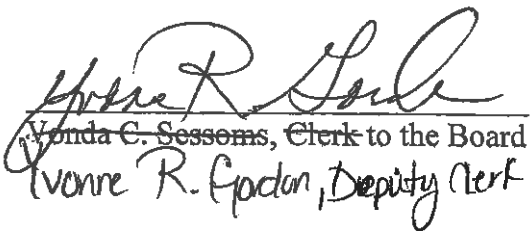 Yvonne R. Gordon
Vonda C. Sessoms, Clerk to the Board
Yvonne R. Gordon, Deputy Clerk